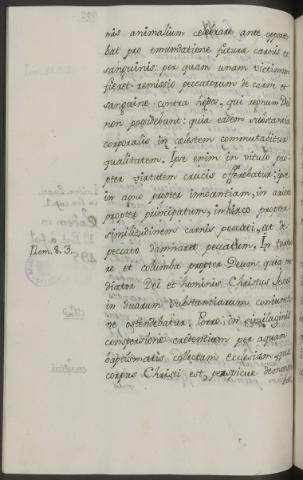 mis animalium celebrare ante oporte
bat pro emundatione futura carnis et
sanguinis: per quam unam victimam
fieret remissio peccatorum de carne et
sanguine contra quos, qui regnum Dei
non possidebunt: quia eadem substantia
corporalis in cælestem commutabitur
qualitatem. Ipse enim in vitulo pro-
pter virtutem crucis offerebatur: ipse
in agno propter innocentiam, in ariete
propter principatum, in hirco propter
similitudinem carnis peccati, ut de
peccato damnaret peccatum. In turtu
re et columba propter Deum, quia me
diator Dei et hominis Christus Jesus
in duarum substantiarum coniunctio
ne ostendebatur. Porro in similaginis
conspersione credentium per aquam
baptismatis collectam Ecclesiam, quæ
corpus Christi est, perspicue demonst
Rom. 8. 3.